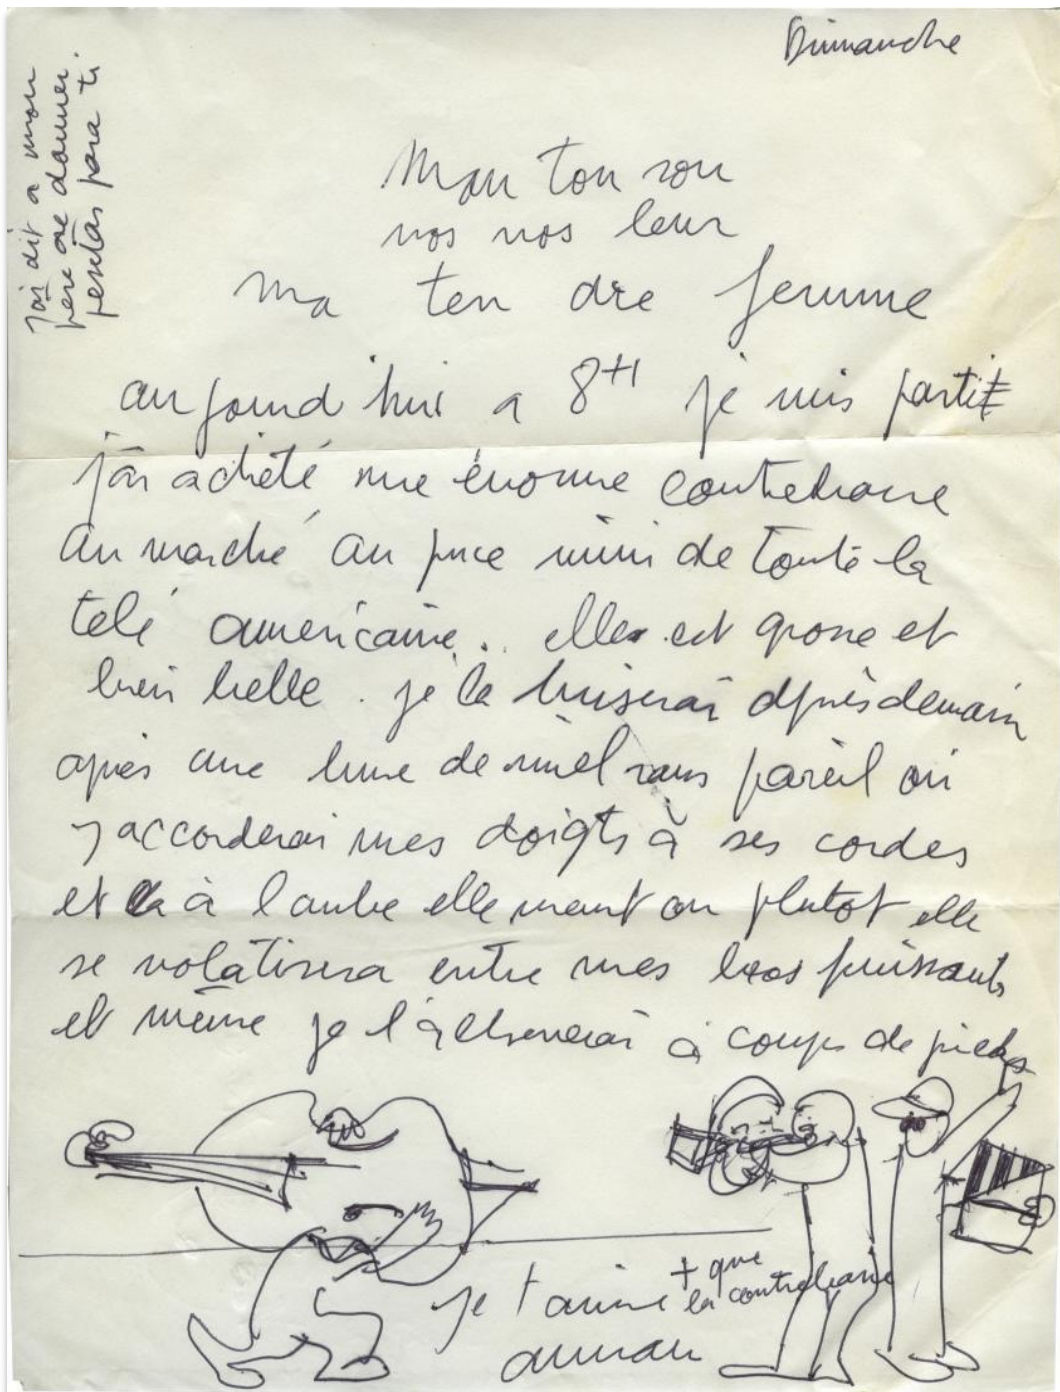 Dimanche
j'ai dit a mon
pere de donner
pesetas para ti.
Mon ton son
nos vos leur
ma ten dre femme
aujourd'hui a 8H je suis parti
j'ai acheté une énorme contrebasse
au marché au puce suivi de toute la
télé américaine.. elle est grosse et
bien belle. je la briserai après demain
après une lune de miel sans pareil où
j accorderai mes doigts à ses cordes
et à l'aube elle meurt ou plutot elle
se volatisera entre mes bras puissants
et même je l'acheverai à coups de pieds
je t'aime + que
la contrebasse
arman